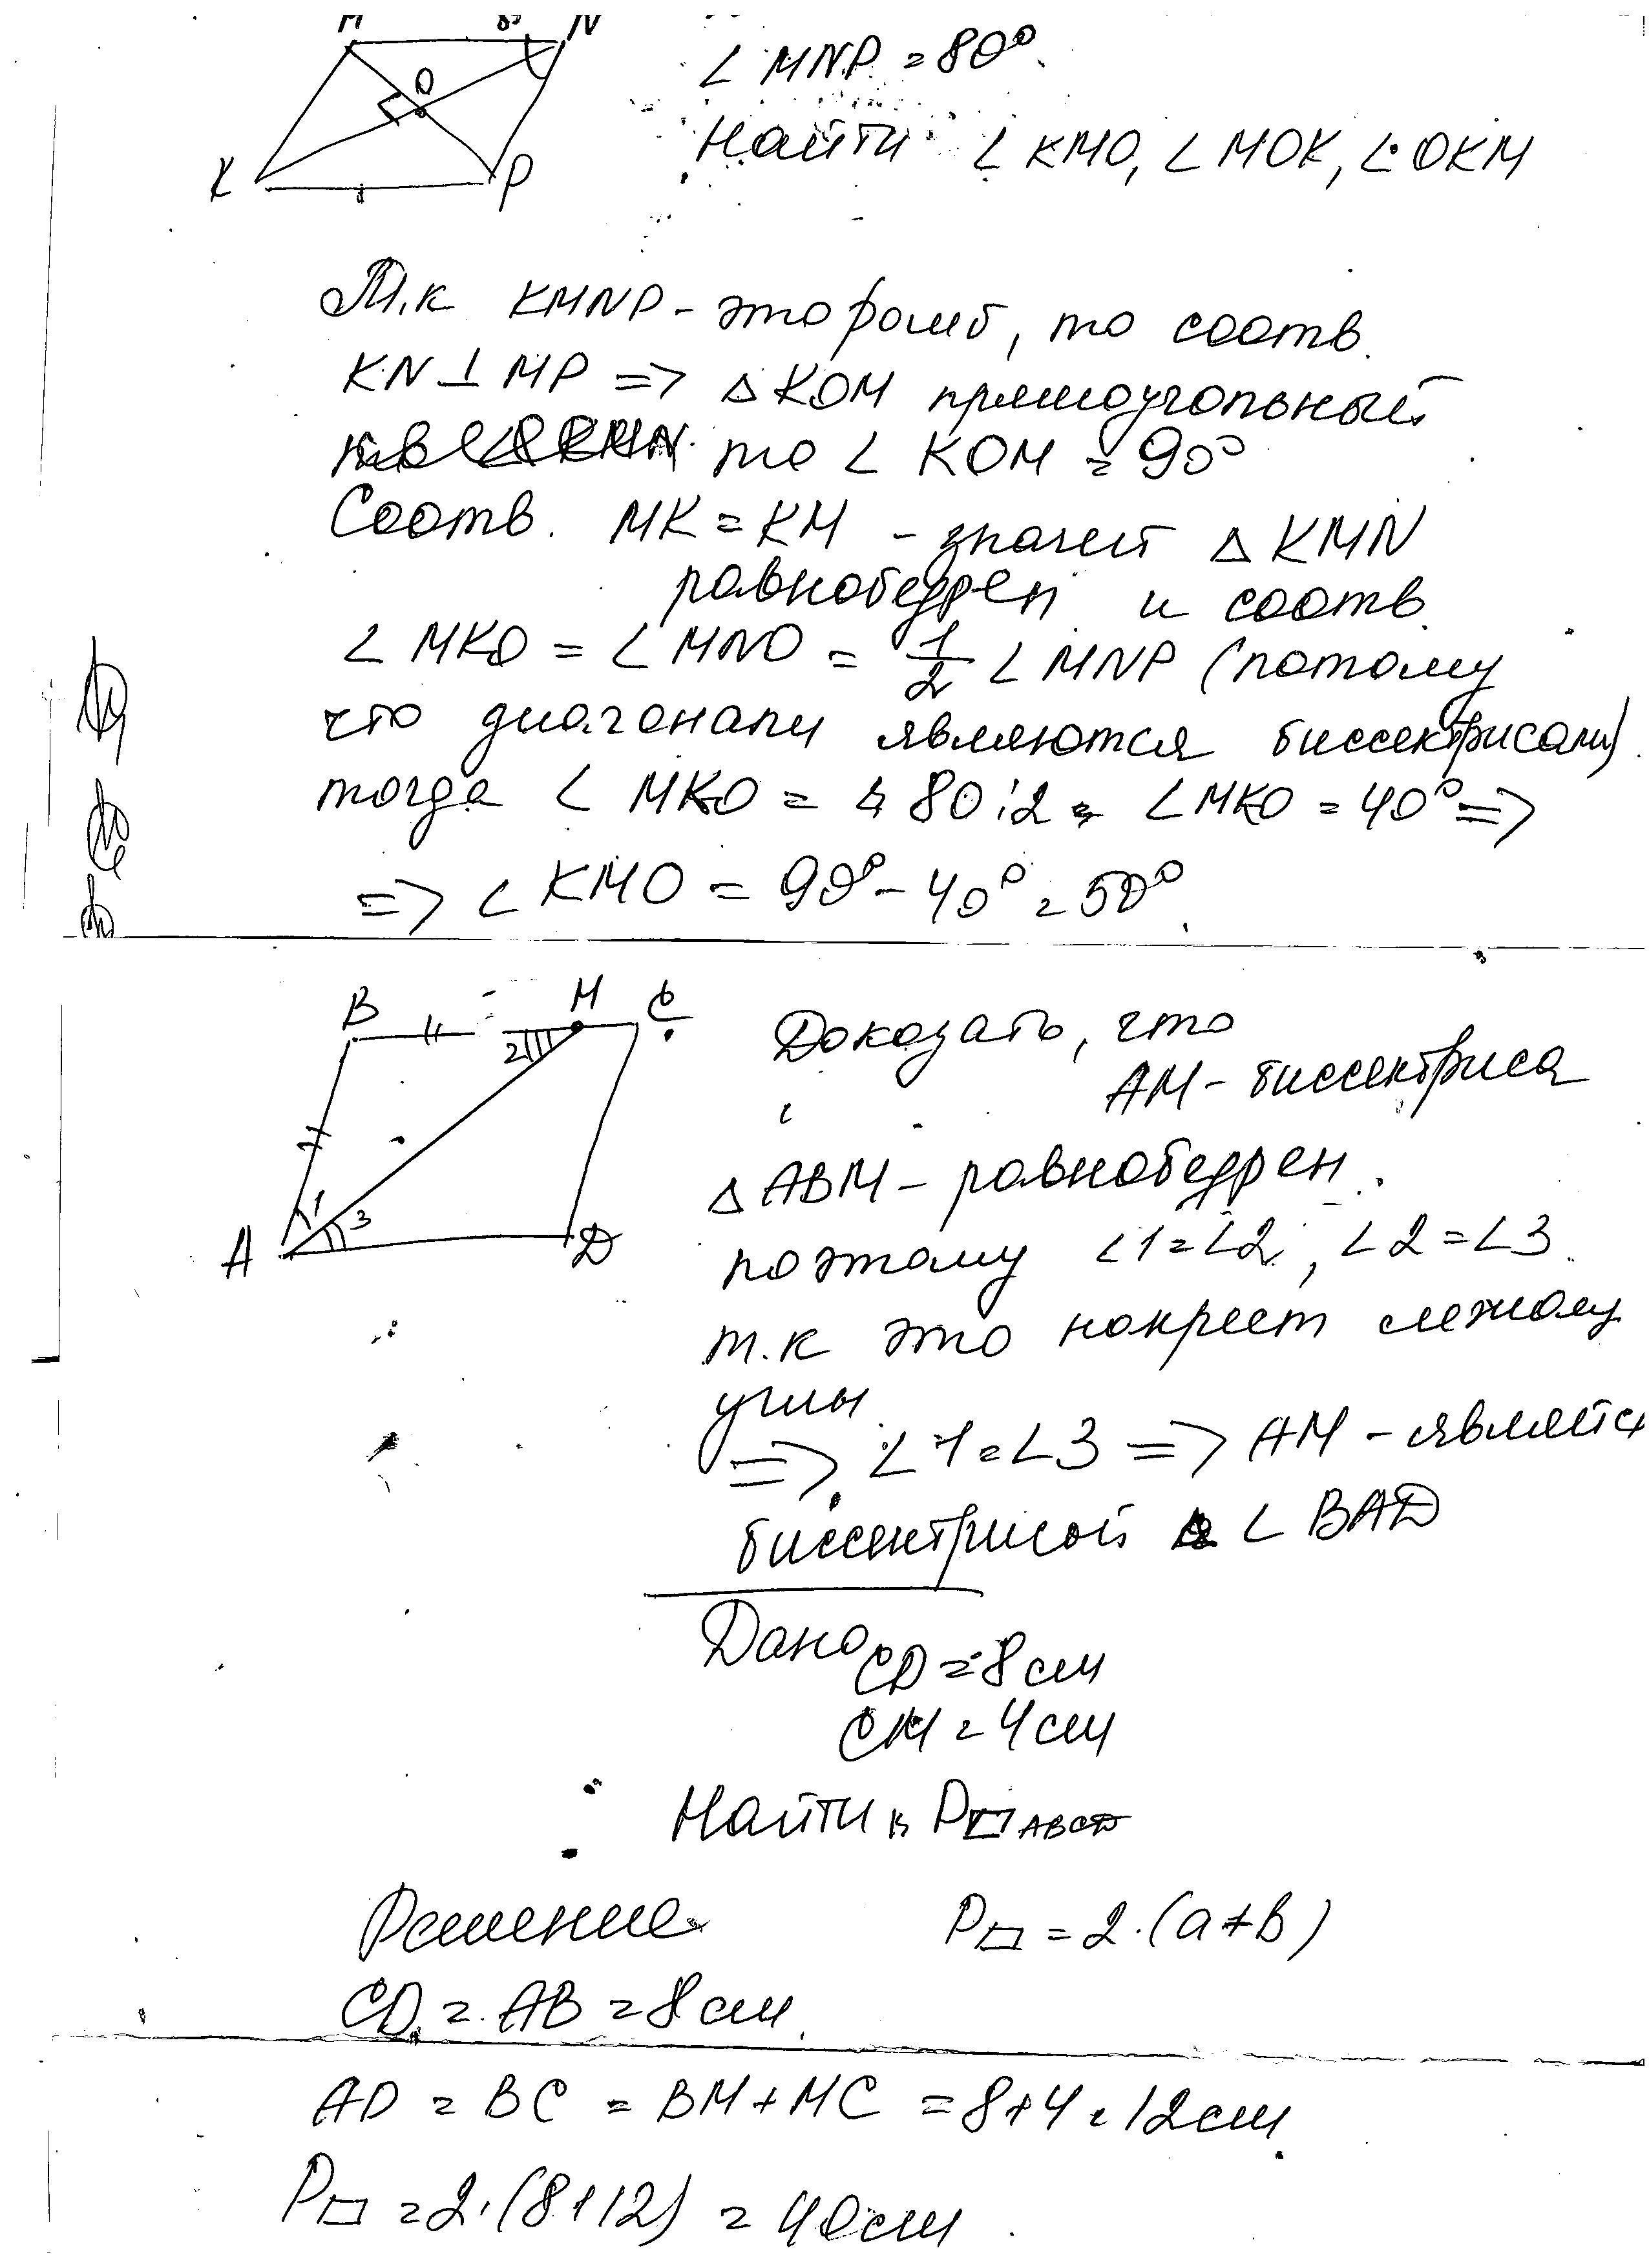 M 8° N
∠ MNP = 80°.
O
Найти ∠ KMO, ∠ MOK, ∠ OKM
K P
Т.к KMNP - это ромб, то соотв.
KN ⊥ MP => △ KOM прямоугольный
то ∠ KOM = 90°
Соотв. MK = KM - значит △ KMN
равнобедрен и соотв.
∠ MKO = ∠ MNO = 1/2 ∠ MNP (потому
что диагонали являются биссектрисами)
тогда ∠ MKO = 80:2 = ∠ MKO = 40° =>
=> ∠ KMO = 90° - 40° = 50°.
B M C
2
Доказать, что
AM - биссектриса
△ ABM - равнобедрен.
1 3
A D
поэтому ∠1 = ∠2, ∠2 = ∠3.
т.к это накрест лежащ
углы
=> ∠1 = ∠3 => AM - является
биссектрисой ∠ BAD
Дано CD = 8 см
CM = 4 см
Найти P▱ABCD
Решение P▱ = 2·(a+b)
CD = AB = 8 см.
AD = BC = BM + MC = 8+4 = 12 см.
P▱ = 2·(8+12) = 40 см.